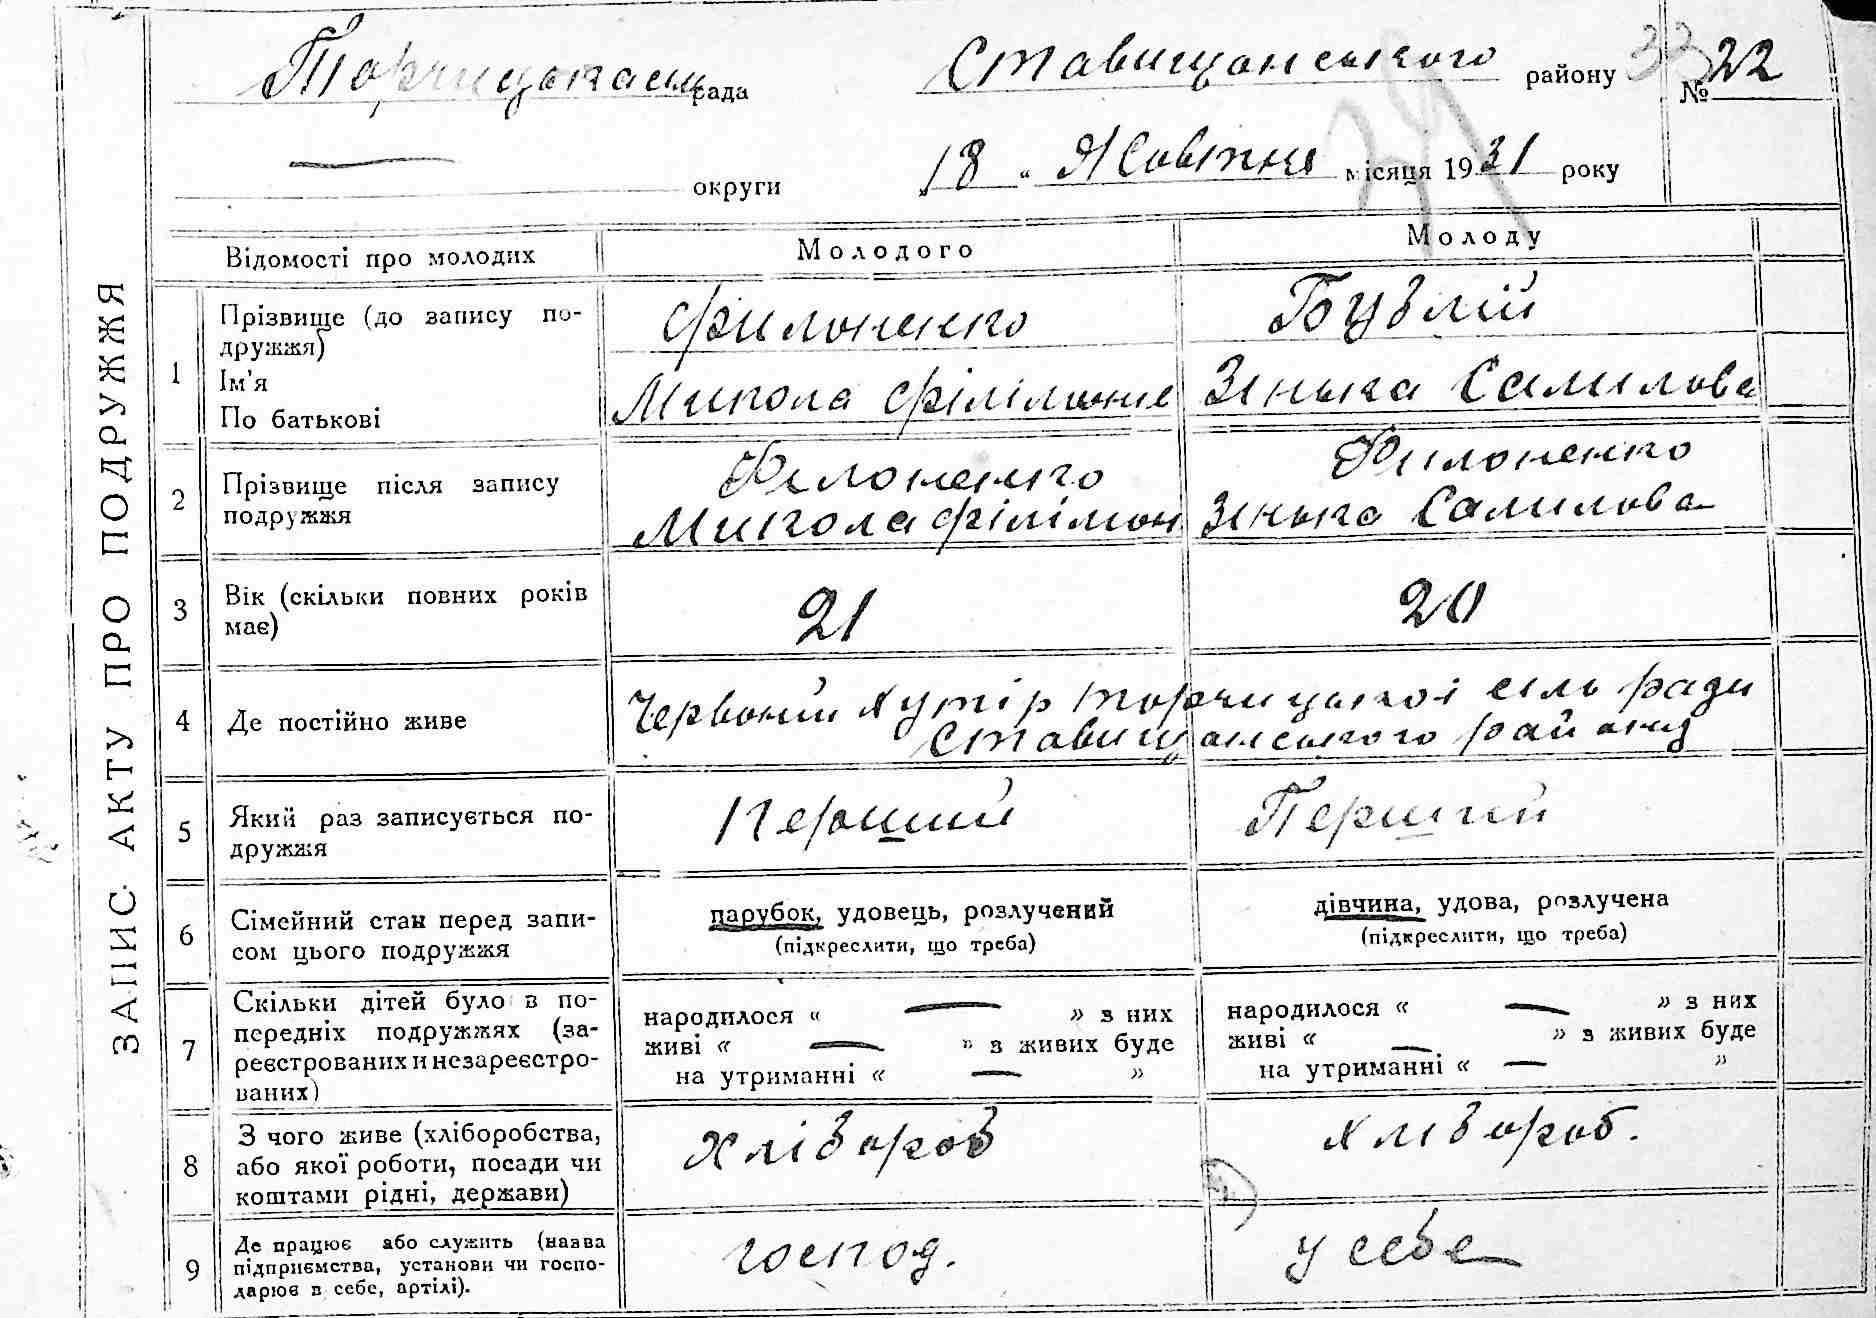 Торчицька сіль рада Ставищанського району № 22
округи 18 " Жовтня місяця 1931 року
ЗАПИС АКТУ ПРО ПОДРУЖЖЯ
Відомості про молодих Молодого Молоду
1 Прізвище (до запису по-дружжя) Филоненко Бублій
Ім'я
По батькові Микола Філімоне Зінька Самилова
2 Прізвище після запису подружжя Филоненко Филоненко
Микола Філімон Зінька Самилова
3 Вік (скільки повних років має) 21 20
4 Де постійно живе Червоний Хутір Торчицької сіль ради
Ставищанського району
5 Який раз записується по-дружжя Перший Перший
6 Сімейний стан перед запи-сом цього подружжя парубок, удовець, розлучений дівчина, удова, розлучена
(підкреслити, що треба) (підкреслити, що треба)
7 Скільки дітей було в по-передніх подружжях (за-реєстрованих и незареєстро-ваних)
народилося « — » з них народилося « — » з них
живі « — » з живих буде живі « — » з живих буде
на утриманні « — » на утриманні « — »
8 З чого живе (хліборобства, або якої роботи, посади чи коштами рідні, держави) хлібороб хлібороб.
9 Де працює або служить (назва підприємства, установи чи госпо-дарює в себе, артілі). господ. у себе